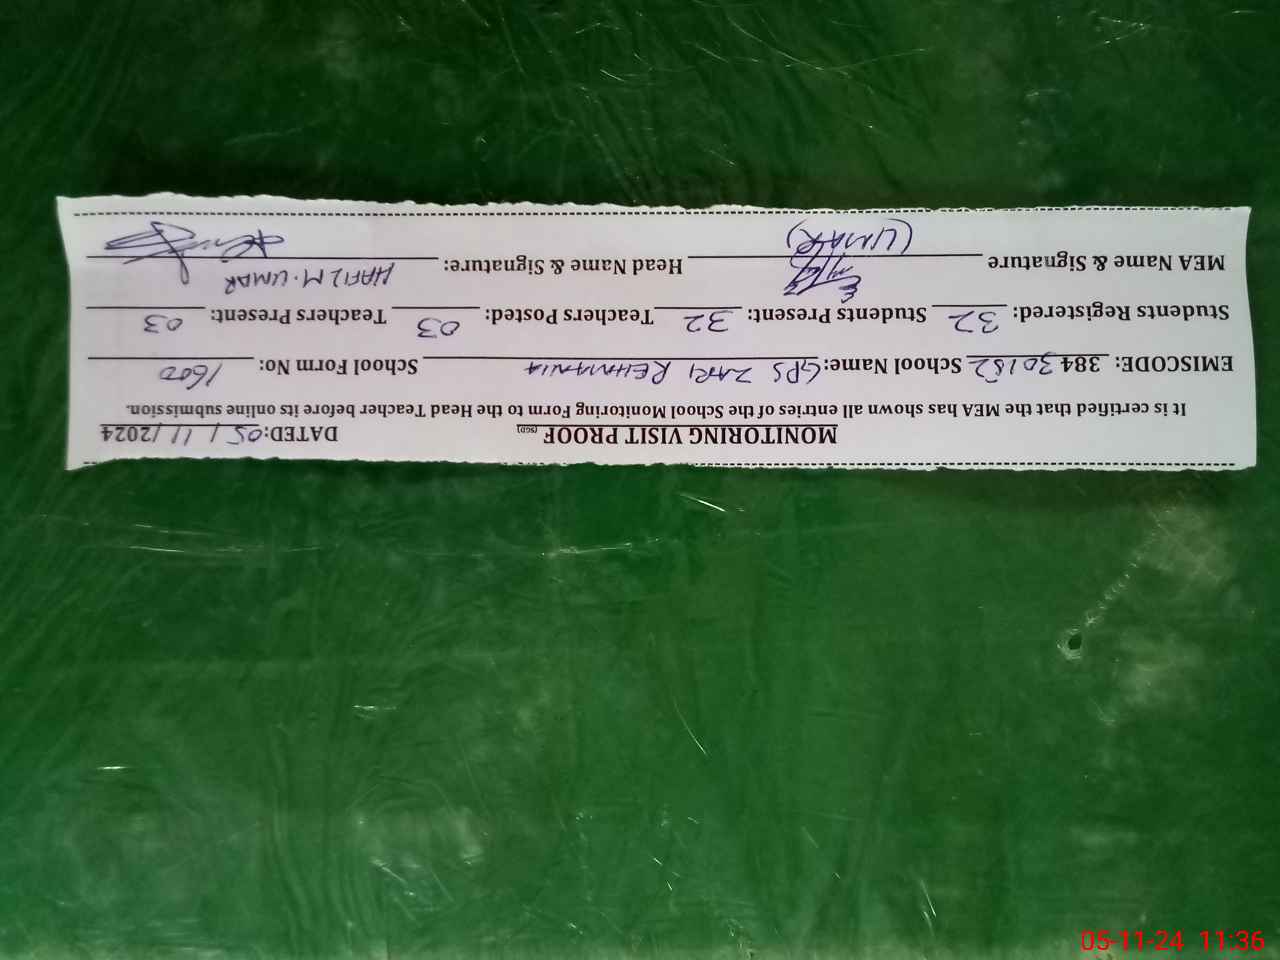 MONITORING VISIT PROOF (SGD) DATED: 05 / 11 /2024
It is certified that the MEA has shown all entries of the School Monitoring Form to the Head Teacher before its online submission.
EMISCODE: 384 30152 School Name: GPS ZARI REHMANIA School Form No: 1600
Students Registered: 32 Students Present: 32 Teachers Posted: 03 Teachers Present: 03
MEA Name & Signature (UMAR) Head Name & Signature: HAFIZ M. UMAR
05-11-24 11:36